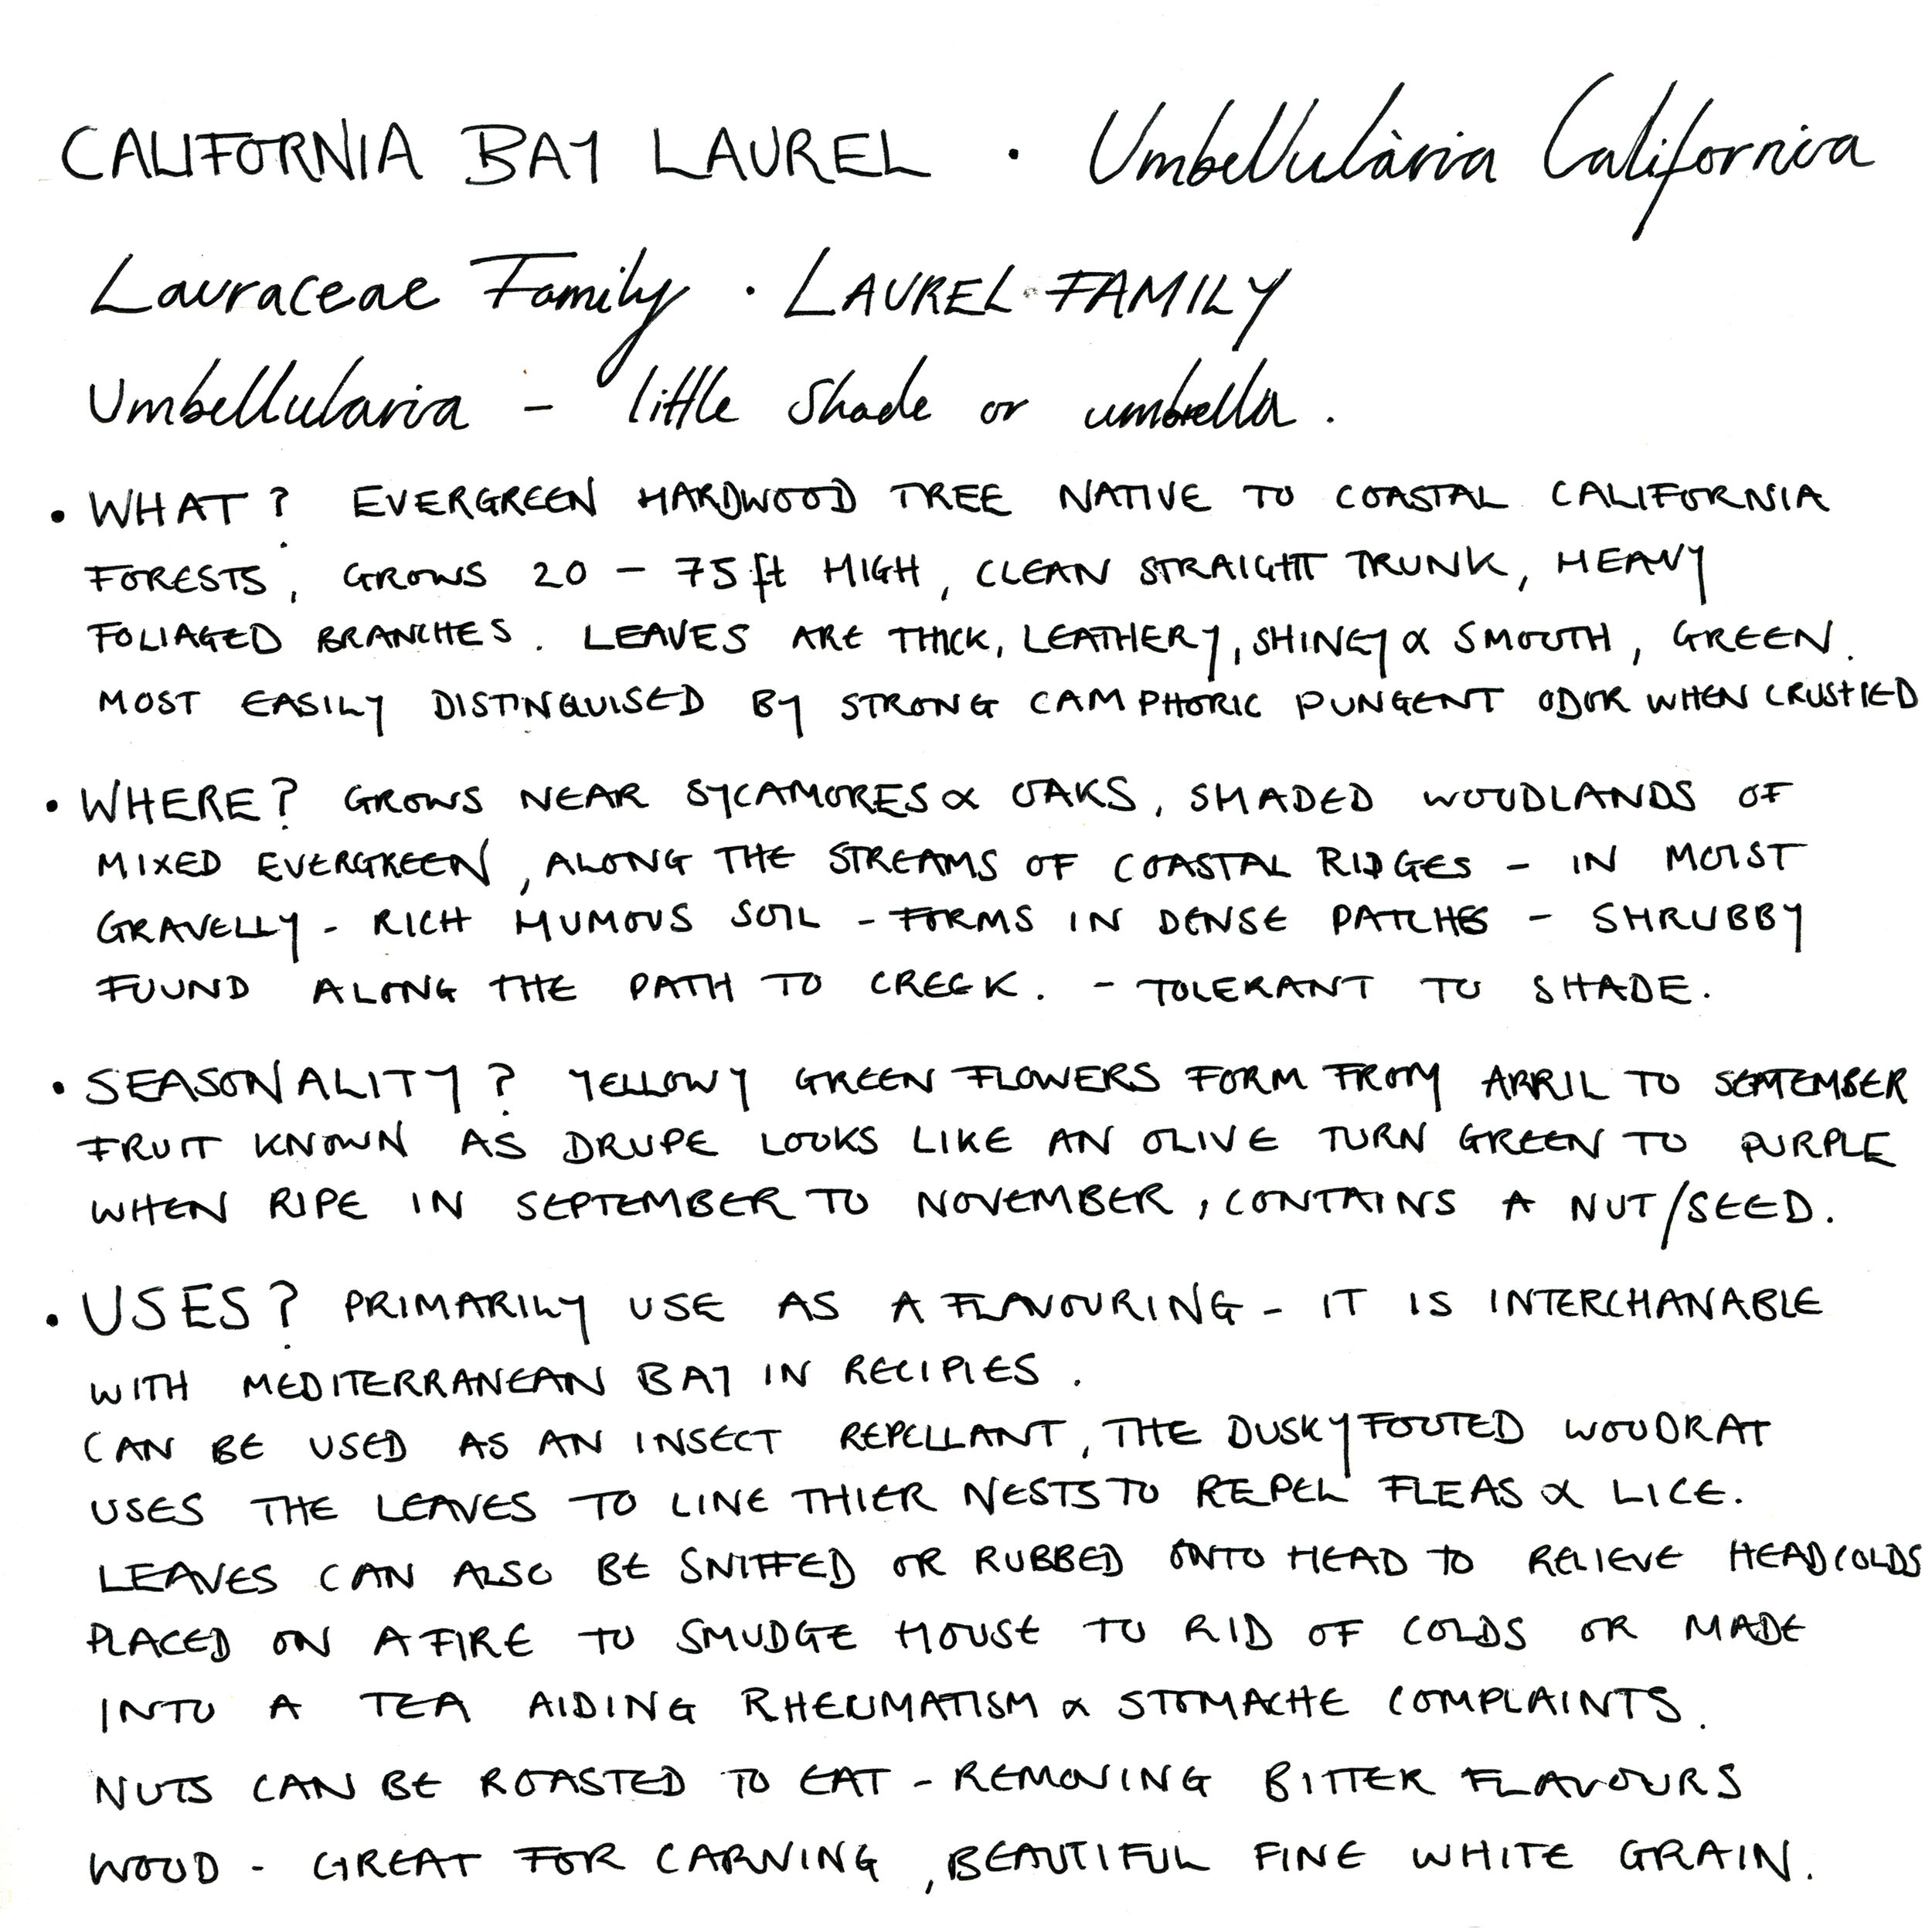 CALIFORNIA BAY LAUREL · Umbellularia California
Lauraceae Family · LAUREL FAMILY
Umbellularia – little shade or umbrella.
• WHAT? EVERGREEN HARDWOOD TREE NATIVE TO COASTAL CALIFORNIA
FORESTS, GROWS 20 – 75ft HIGH, CLEAN STRAIGHT TRUNK, HEAVY
FOLIAGED BRANCHES. LEAVES ARE THICK, LEATHERY, SHINEY & SMOOTH, GREEN.
MOST EASILY DISTINQUISED BY STRONG CAMPHORIC PUNGENT ODOR WHEN CRUSHED
• WHERE? GROWS NEAR SYCAMORES & OAKS, SHADED WOODLANDS OF
MIXED EVERGREEN, ALONG THE STREAMS OF COASTAL RIDGES – IN MOIST
GRAVELLY - RICH HUMOUS SOIL – FORMS IN DENSE PATCHES – SHRUBBY
FOUND ALONG THE PATH TO CREEK. – TOLERANT TO SHADE.
• SEASONALITY? YELLOWY GREEN FLOWERS FORM FROM APRIL TO SEPTEMBER
FRUIT KNOWN AS DRUPE LOOKS LIKE AN OLIVE TURN GREEN TO PURPLE
WHEN RIPE IN SEPTEMBER TO NOVEMBER, CONTAINS A NUT/SEED.
• USES? PRIMARILY USE AS A FLAVOURING – IT IS INTERCHANABLE
WITH MEDITERRANEAN BAY IN RECIPIES.
CAN BE USED AS AN INSECT REPELLANT, THE DUSKY FOOTED WOODRAT
USES THE LEAVES TO LINE THIER NESTS TO REPEL FLEAS & LICE.
LEAVES CAN ALSO BE SNIFFED OR RUBBED ONTO HEAD TO RELIEVE HEADCOLDS
PLACED ON A FIRE TO SMUDGE HOUSE TO RID OF COLDS OR MADE
INTO A TEA AIDING RHEUMATISM & STOMACHE COMPLAINTS.
NUTS CAN BE ROASTED TO EAT – REMOVING BITTER FLAVOURS
WOOD - GREAT FOR CARVING, BEAUTIFUL FINE WHITE GRAIN.